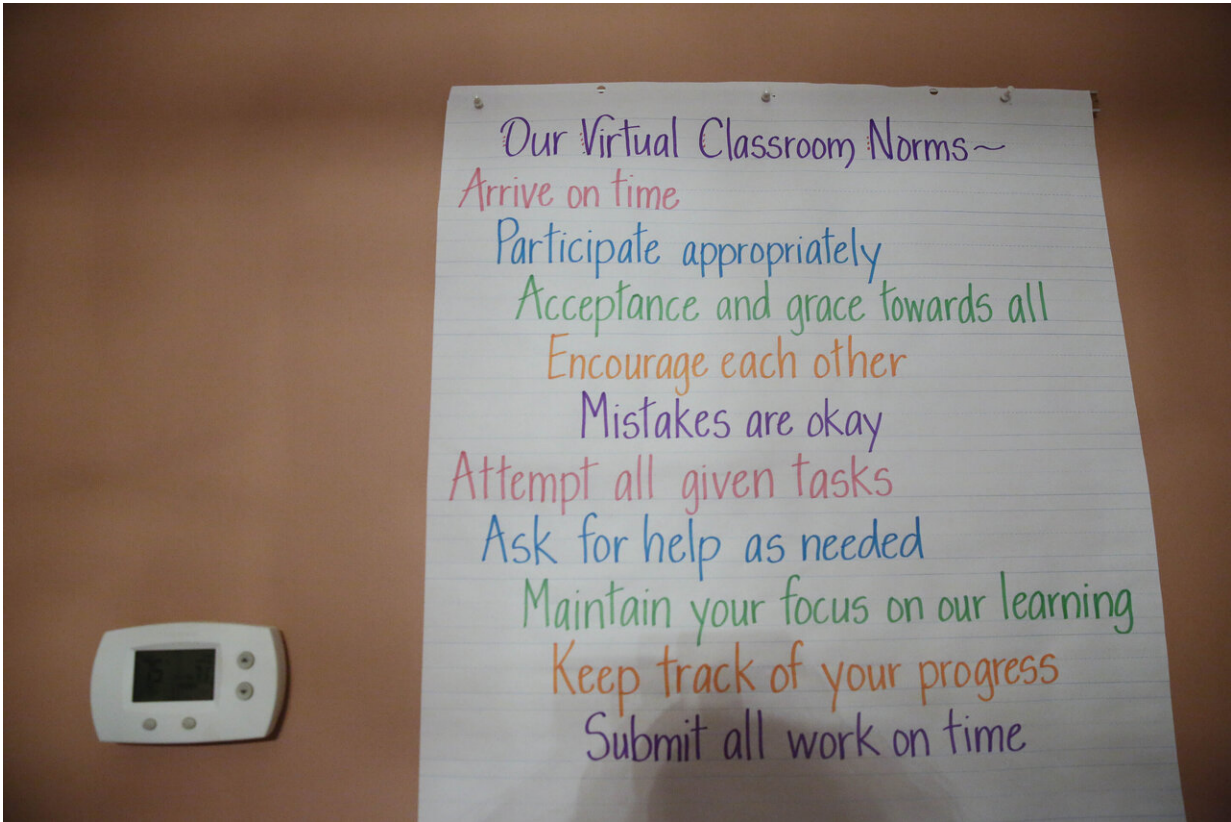 Our Virtual Classroom Norms~
Arrive on time
Participate appropriately
Acceptance and grace towards all
Encourage each other
Mistakes are okay
Attempt all given tasks
Ask for help as needed
Maintain your focus on our learning
Keep track of your progress
Submit all work on time